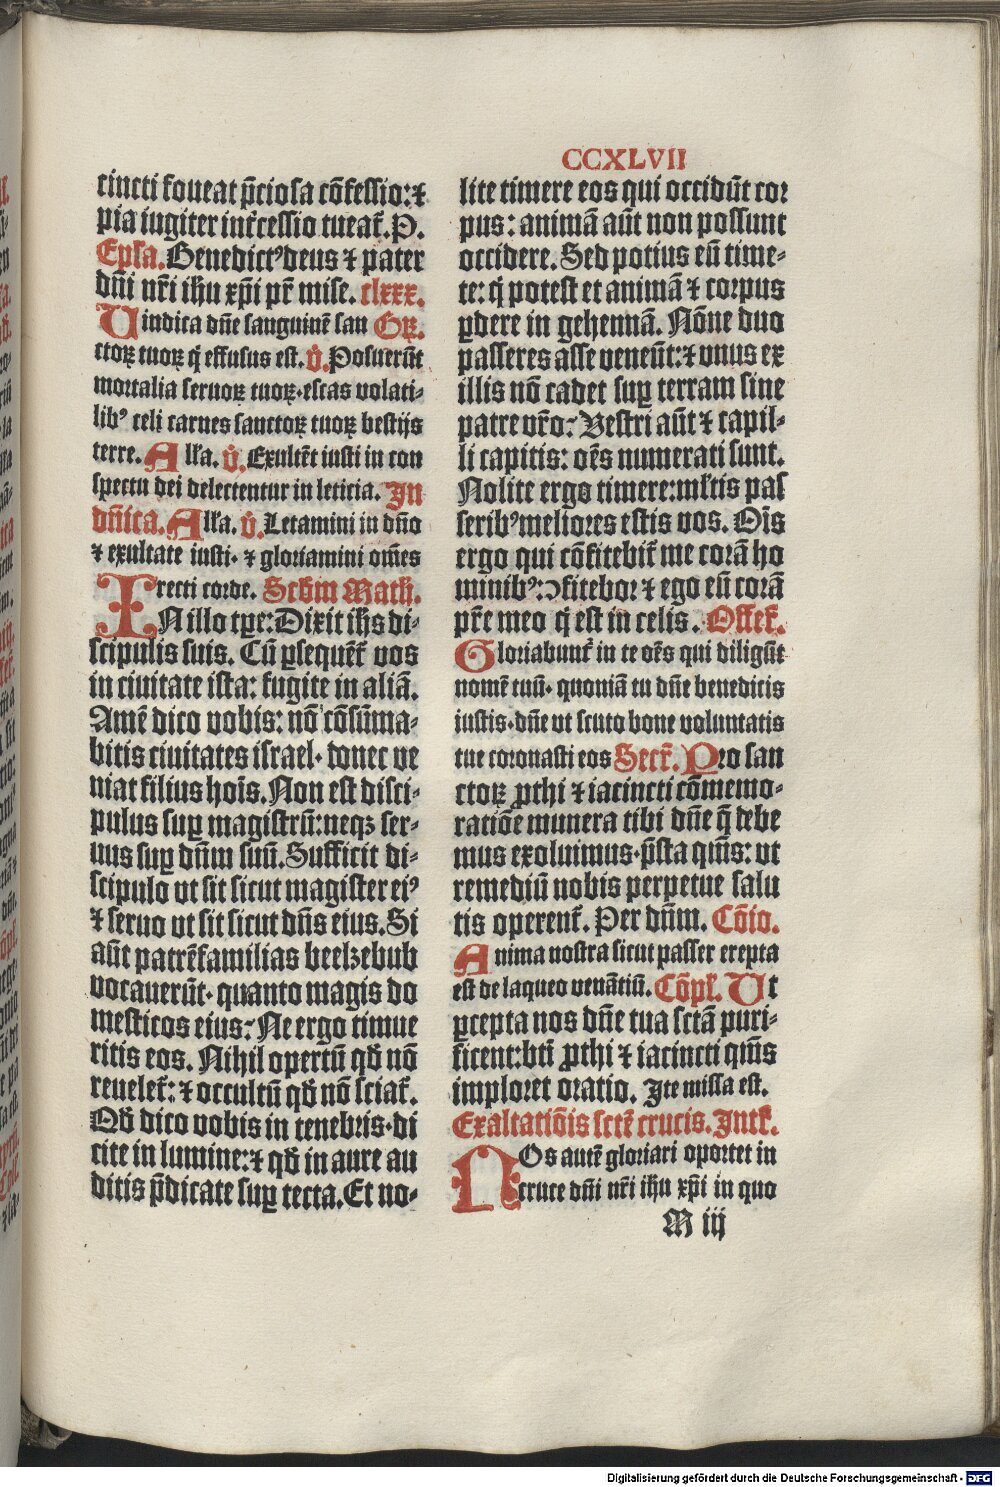 CCXLVII
cincti foueat p̄ciosa cōfessio: ⁊
pia iugiter int̄cessio tueat᷑. P.
Ep̄la. Benedictꝰ deus ⁊ pater
dn̄i nr̄i ih̄u xp̄i pr̄ mise. clxxx.
Uindica dn̄e sanguinē san Gꝛ.
ctoꝝ tuoꝝ q̄ effusus est. v̊. Posuerūt
mortalia seruoꝝ tuoꝝ · escas volati⸗
libꝰ celi carnes sanctoꝝ tuoꝝ bestijs
terre. All'a. v̊. Exultēt iusti in con
spectu dei delectentur in leticia. In
dn̄ica. All'a. v̊. Letamini in dn̄o
⁊ exultate iusti · ⁊ gloriamini om̄es
recti corde. Scd̄m Math.
IN illo tꝑe: Dixit ih̄s di⸗
scipulis suis. Cū ꝑsequēt᷑ vos
in ciuitate ista: fugite in aliā.
Amē dico vobis: nō cōsūma⸗
bitis ciuitates israel · donec ve
niat filius hoīs. Non est disci⸗
pulus suꝑ magistrū: neqꝫ ser⸗
uus suꝑ dn̄m suū. Sufficit di⸗
scipulo vt sit sicut magister eiꝰ
⁊ seruo vt sit sicut dn̄s eius. Si
aūt patrēfamilias beelzebub
vocauerūt · quanto magis do
mesticos eius? Ne ergo timue
ritis eos. Nihil opertū qd̄ nō
reuelet᷑: ⁊ occultū qd̄ nō sciat᷑.
Qd̄ dico vobis in tenebris · di
cite in lumine: ⁊ qd̄ in aure au
ditis p̄dicate suꝑ tecta. Et no⸗
lite timere eos qui occidūt cor
pus: animā aūt non possunt
occidere. Sed potius eū time⸗
te: q̄ potest et animā ⁊ corpus
ꝑdere in gehennā. Nōne duo
passeres asse veneūt: ⁊ vnus ex
illis nō cadet suꝑ terram sine
patre vr̄o? Vestri aūt ⁊ capil⸗
li capitis: oēs numerati sunt.
Nolite ergo timere: ml̄tis pas
seribꝰ meliores estis vos. Oīs
ergo qui cōfitebit᷑ me corā ho
minibꝰ: ↄfitebor ⁊ ego eū corā
pr̄e meo q̄ est in celis. Offer᷑.
Gloriabunt᷑ in te oēs qui diligūt
nomē tuū · quoniā tu dn̄e benedicis
iustis · dn̄e vt scuto bone voluntatis
tue coronasti eos Secr᷑. Pro san
ctoꝝ ꝓthi ⁊ iacincti cōmemo⸗
ratiōe munera tibi dn̄e q̄ debe
mus exoluimus · p̄sta qm̄s: vt
remediū nobis perpetue salu
tis operent᷑. Per dn̄m. Cōio.
Anima nostra sicut passer erepta
est de laqueo venātiū. Cōpl᷑. Ut
ꝑcepta nos dn̄e tua sctā puri⸗
ficent: bt̄i ꝓthi ⁊ iacincti qm̄s
imploret oratio. Ite missa est.
Exaltatiōis scte᷑ crucis. Intr᷑.
NOs autē gloriari oportet in
cruce dn̄i nr̄i ih̄u xp̄i in quo
M iij
Digitalisierung gefördert durch die Deutsche Forschungsgemeinschaft - DFG